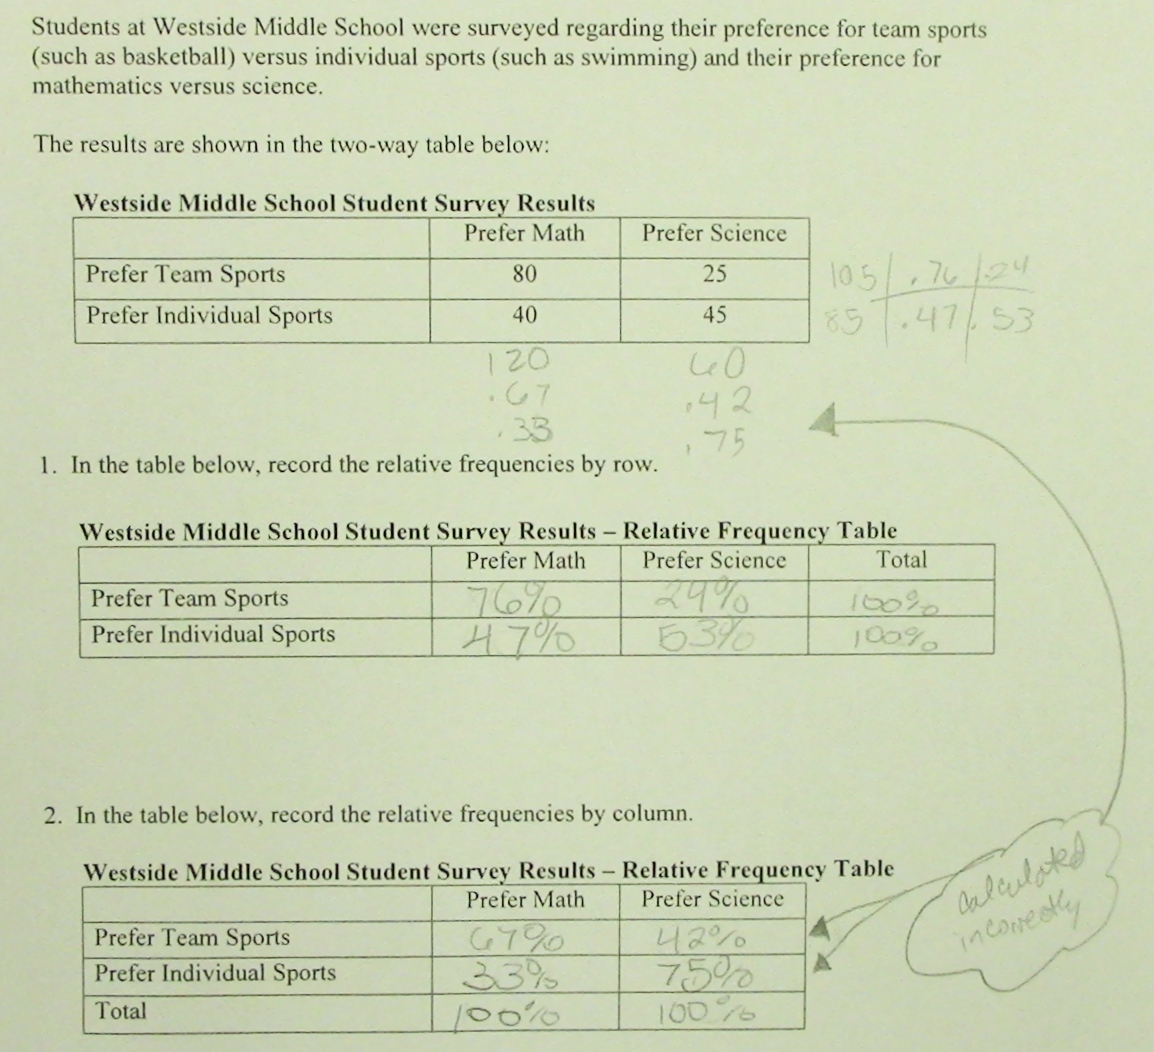 Students at Westside Middle School were surveyed regarding their preference for team sports
(such as basketball) versus individual sports (such as swimming) and their preference for
mathematics versus science.
The results are shown in the two-way table below:
Westside Middle School Student Survey Results
Prefer Math Prefer Science
Prefer Team Sports 80 25 105 .76 .24
Prefer Individual Sports 40 45 85 .47 .53
120 60
.67 .42
.33 .75
1. In the table below, record the relative frequencies by row.
Westside Middle School Student Survey Results – Relative Frequency Table
Prefer Math Prefer Science Total
Prefer Team Sports 76% 24% 100%
Prefer Individual Sports 47% 53% 100%
2. In the table below, record the relative frequencies by column.
Westside Middle School Student Survey Results – Relative Frequency Table
Prefer Math Prefer Science
Prefer Team Sports 67% 42%
Prefer Individual Sports 33% 75%
Total 100% 100%
calculated
incorrectly